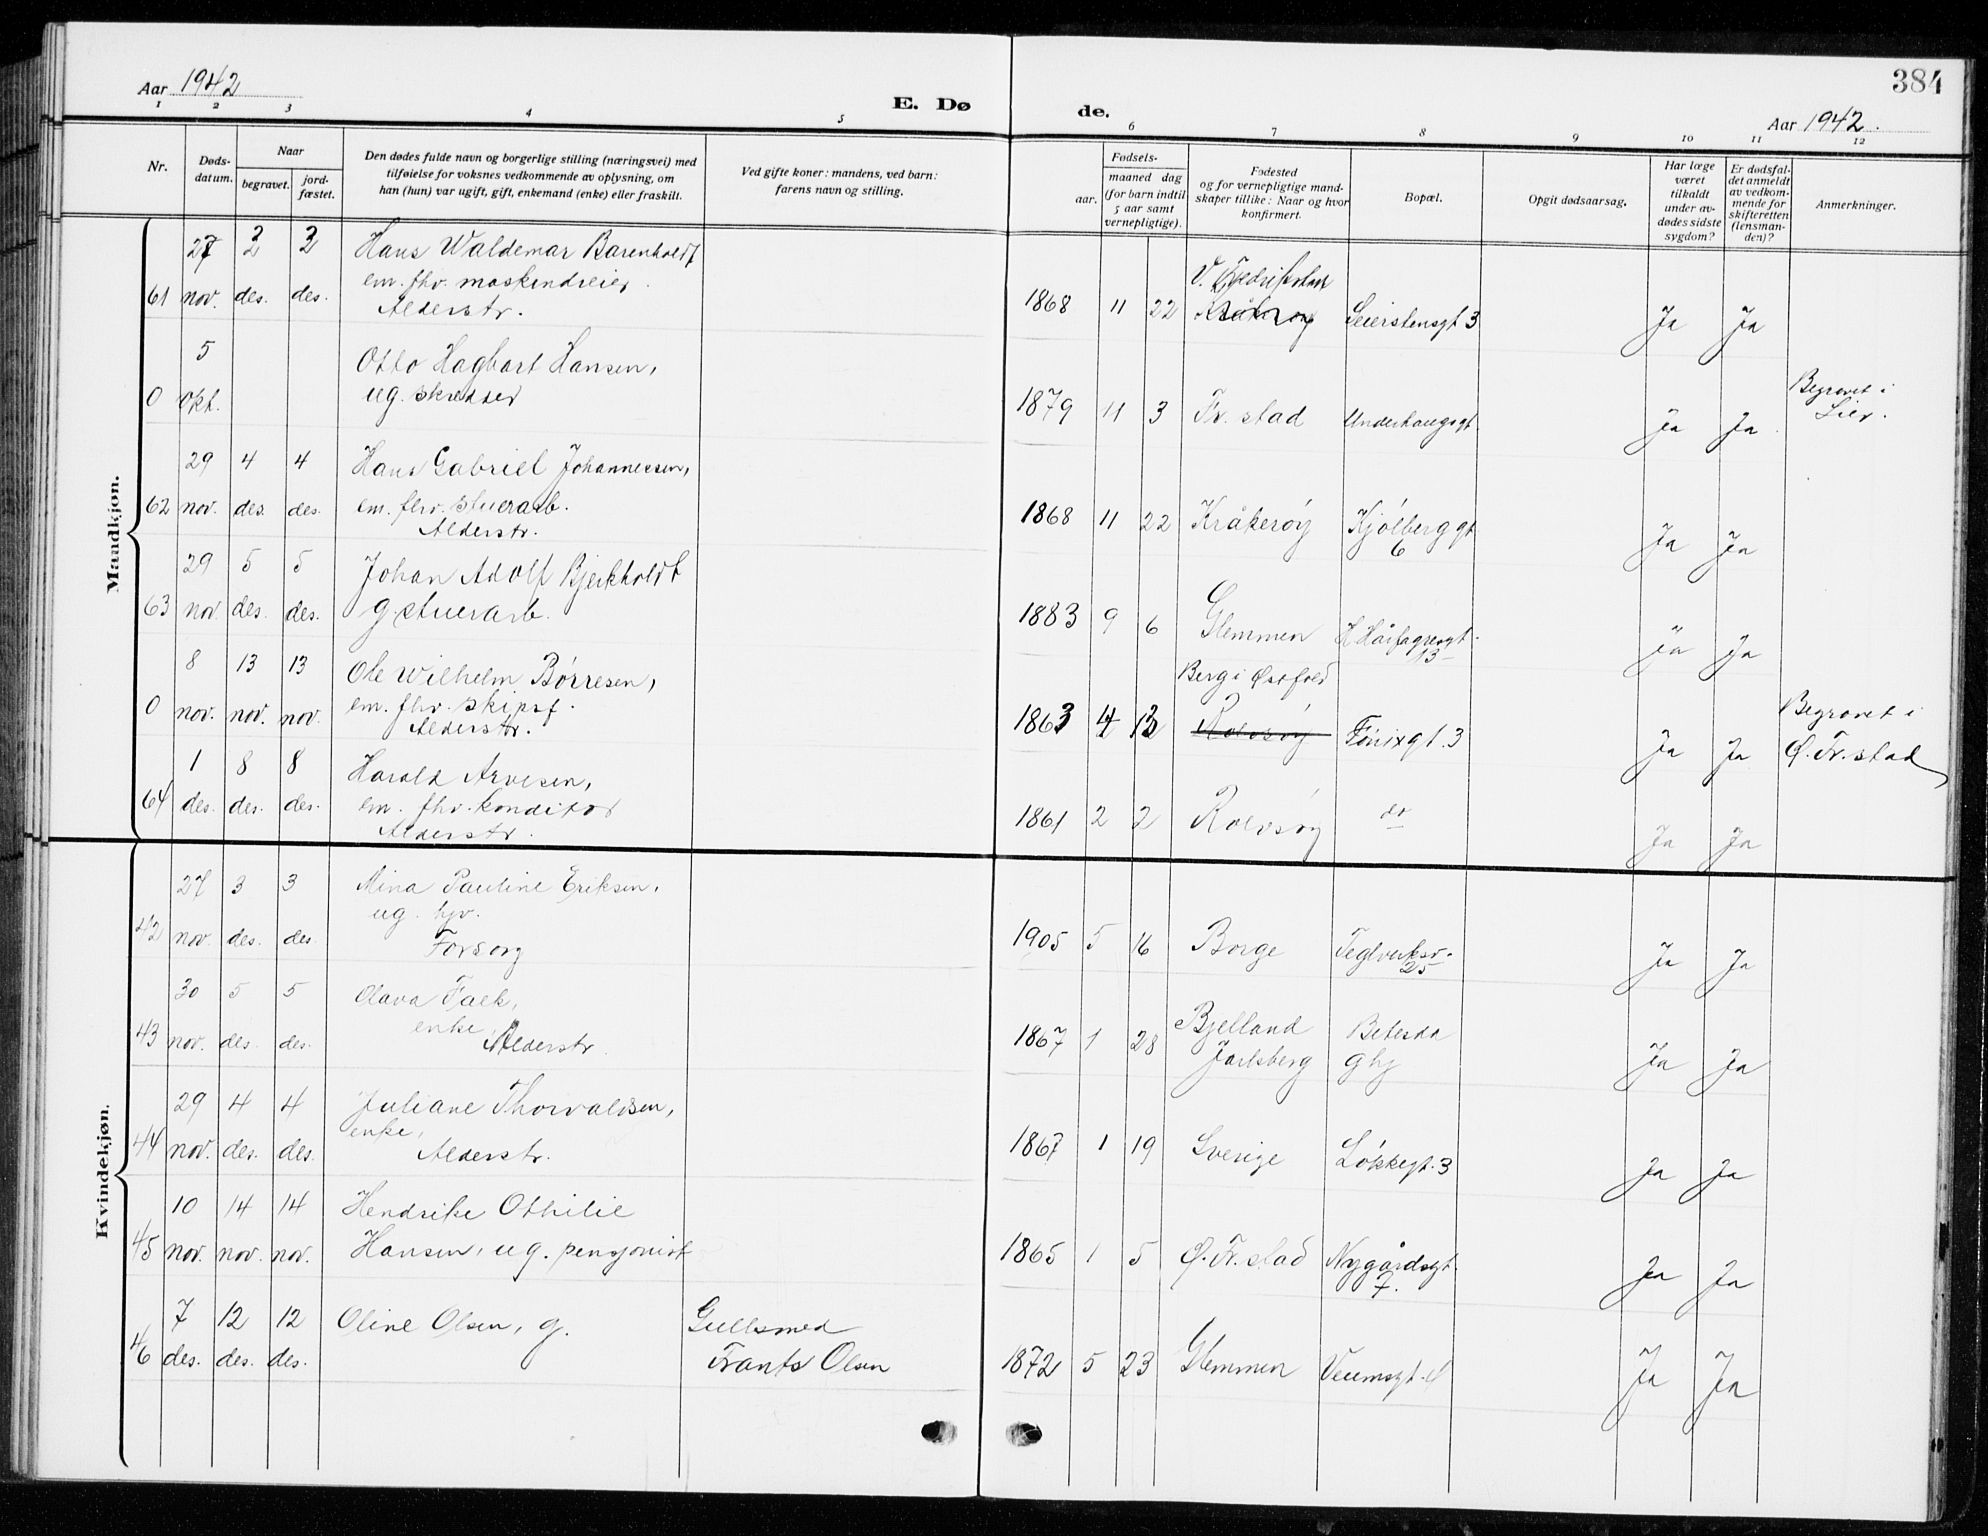 Aar 1942
E. Dø
de.
384
Aar 1942.
1 2 3 4 5 6 7 8 9 10 11 12
Nr.
Døds-
datum.
Naar
begravet.
jord-
fæstet.
Den dødes fulde navn og borgerlige stilling (næringsvei) med
tilføielse for voksnes vedkommende av oplysning, om
han (hun) var ugift, gift, enkemand (enke) eller fraskilt.
Ved gifte koner: mandens, ved barn:
farens navn og stilling.
Fødsels-
aar.
maaned dag
(for barn indtil
5 aar samt
vernepligtige).
Fødested
og for vernepligtige mand-
skaper tillike: Naar og hvor
konfirmert.
Bopæl.
Opgit dødsaarsag.
Har læge
været
tilkaldt
under av-
dødes sidste
sygdom?
Er dødsfal-
det anmeldt
av vedkom-
mende for
skifteretten
(lensman-
den)?
Anmerkninger.
Maadkjøn.
27 3 3 Hans Waldemar Barenholdt
em. fhv. maskindreier.
61 nov. des. des. Alderstr.
V. Fredrikstad
1868 11 22 Kråkerøy Leierstensgt 3 Ja Ja
5 Otto Hagbart Hansen,
0 okt. ug. skredder
1879 11 3 Fr. stad Underhaugsgt. Ja Ja.
Begravet i
Lier.
29 4 4 Hans Gabriel Johannessen,
62 nov. des. des. em. fhv. stuerarb.
Alderstr.
1868 11 22 Kråkerøy Kjølberggt
6 Ja Ja
29 5 5 Johan Adolf Bjerkholdt
63 nov des. des. g. stuerarb.
1883 9 6 Glemmen H. Hårfagresgt.
13 Ja Ja
8 13 13 Ole Wilhelm Børresen,
0 nov. nov. nov. em. fhv. skipsf.
Alderstr.
Berg i Østfold
1863 4 13 Rolvsøy Fønixgt. 3 Ja Ja
Begravet i
Ø. Fr. stad
1 8 8 Harald Arvesen,
64 des. des. des. em. fhv. konditor
Alderstr.
1861 2 2 Rolvsøy do Ja Ja
Kvindekjøn.
27 3 3 Mina Pauline Eriksen,
ug. hjv.
42 nov. des. des. Forsorg
1905 5 16 Borge Teglverksv.
25 Ja Ja
30 5 5 Olava Falk,
enke,
43 nov. des. des. Alderstr.
1867 1 28 Bjelland
Jarlsberg Betesda
ghj Ja Ja
29 4 4 Juliane Thorvaldsen,
enke,
44 nov. des. des. Alderstr.
1867 1 19 Sverige Løkkegt. 3 Ja Ja
10 14 14 Hendrike Othilie
45 nov. nov. nov. Hansen, ug. pensjonist
1865 1 5 Ø. Fr. stad Nygårdsgt.
7. Ja Ja
7 12 12 Oline Olsen, g. Gullsmed
46 des. des. des. Frants Olsen
1872 5 23 Glemmen Veumsgt. 4 Ja Ja